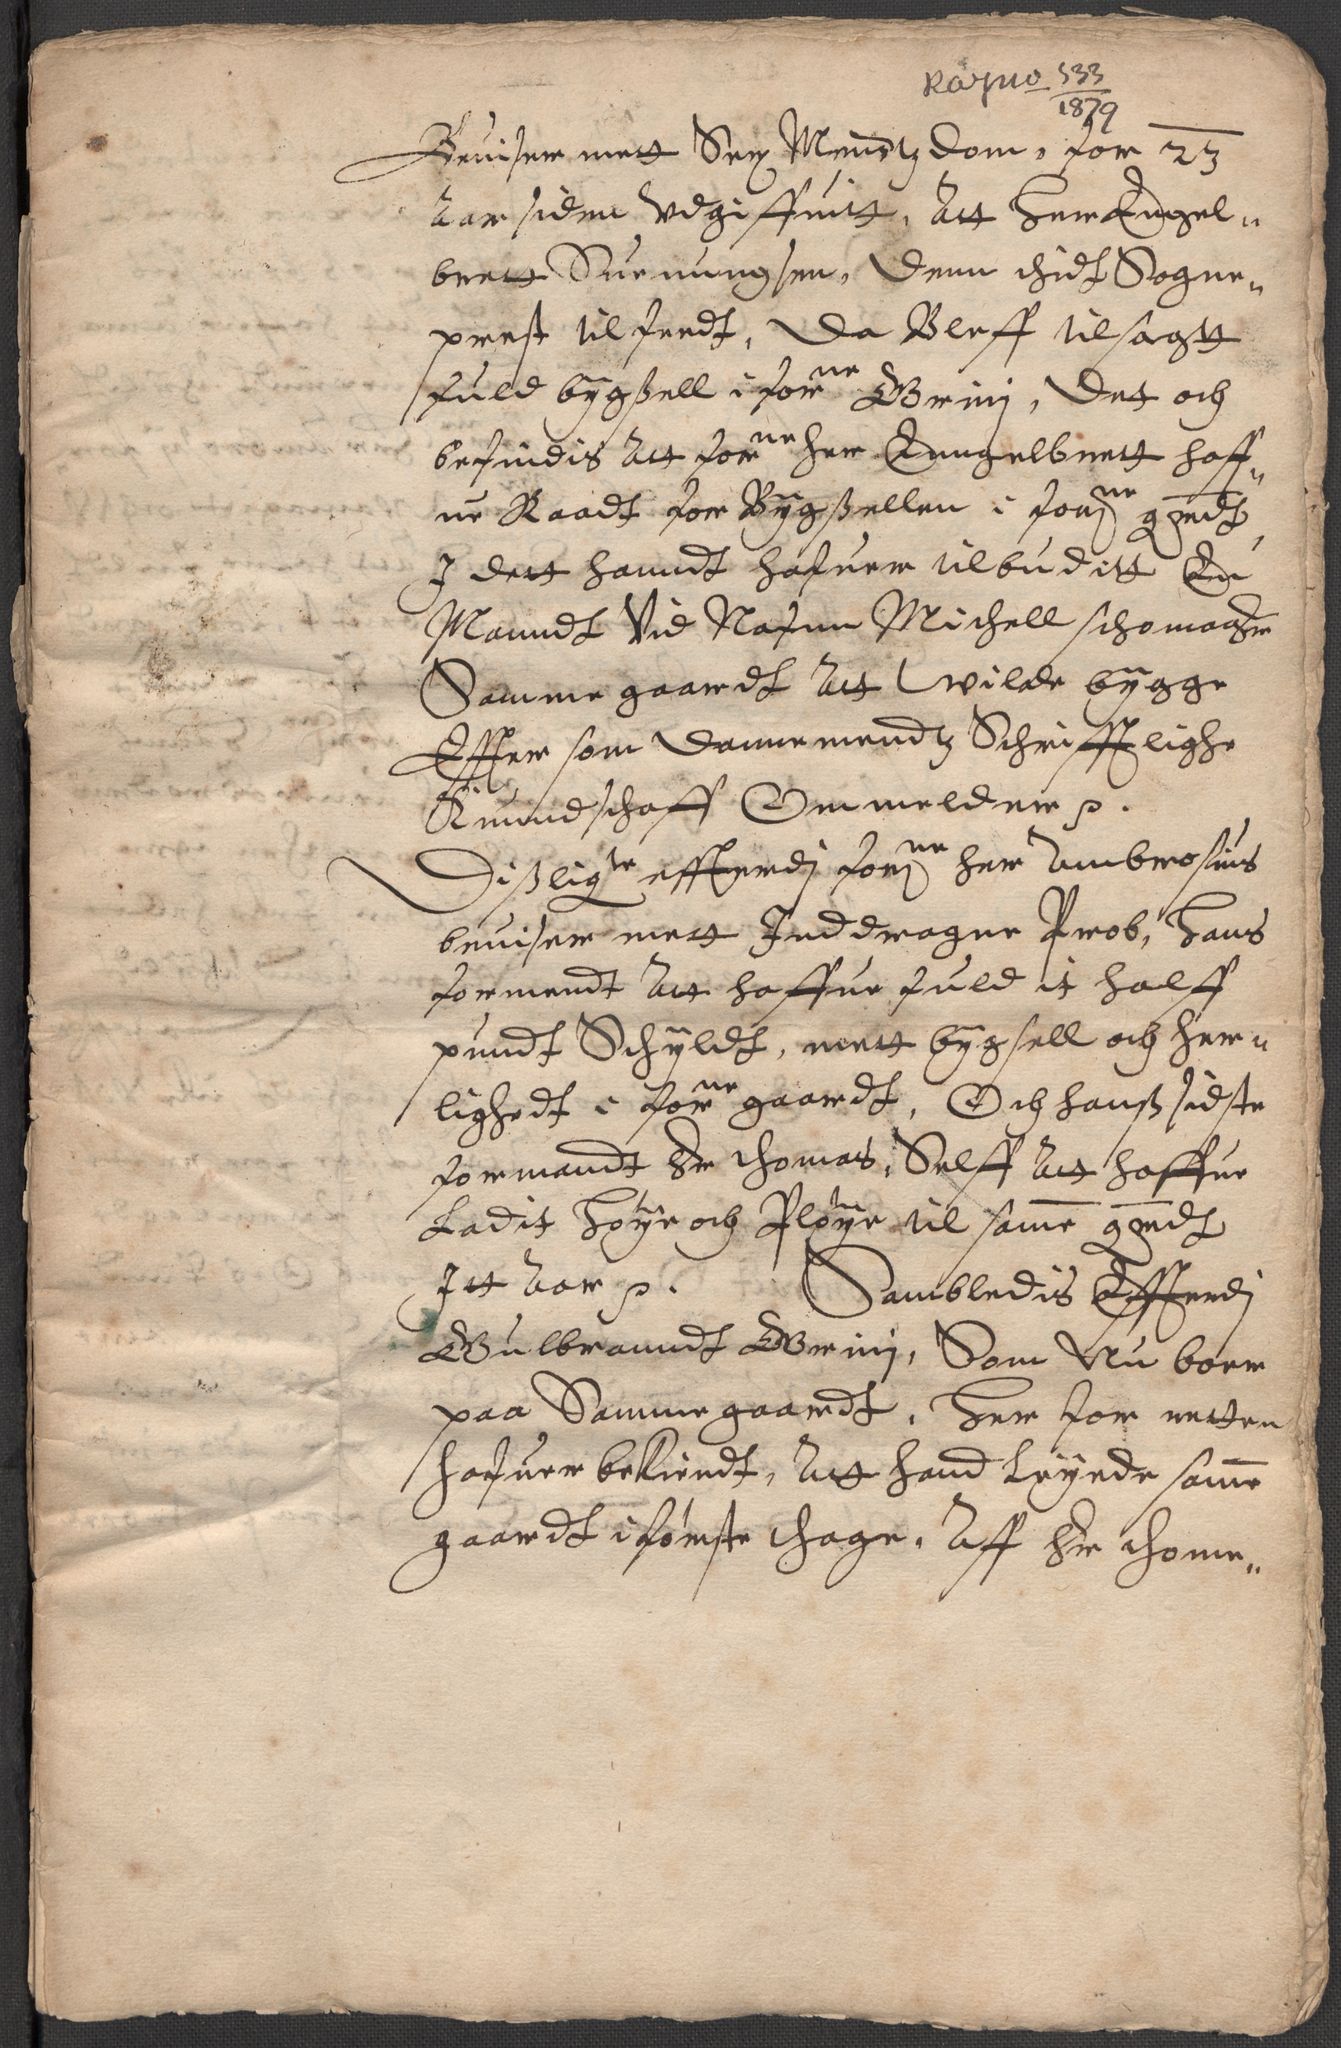 Ra gno 533
1879
Beuiser mett Sex Mendtz dom, for 23
Aar siden Vdgiffuitt, Att Her Engel„
brett Suenungsen, Denn thidt Sogne„
prest til ferdt, Da Bleff tilsagtt
fuld bÿgßell i forne Grinj, Det och
befindis Att forne her Enngelbrett haff„
ue Raadt for Bÿgßellen i forne gordt,
J dett hanndt hafuer tilbuditt En
Manndt Vid Nafnn Michell schomager
Samme gaardt Att wilde bÿgge
Effter som Dannemendtz Schrifftlighe
Kunndschaff Ommelder p.
Dißligte effterdj forne her Ambrosius
beuiser mett Jnddragne Prob, Hans
formendt Att haffue fuld it halff
pundt Schÿldt, mett bÿgsell och her„
lighedt i forne gaardt, Och hanß sidste
formandt Her thomas, Selff Att haffue
Ladit Høÿe och Pløÿe til samme gordt
Jtt Aar p. Sambledis Effterdj
Gulbranndt Grinj, Som Nu boer
paa Samme gaardt, Her for retten
hafuer bekiendt, Att hand Leÿede samme
gaardt i første thage, Aff Her thome„